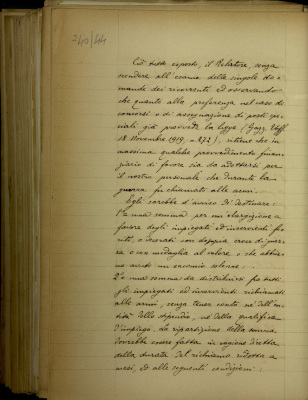 240/44
Ciò tutto esposto, il Relatore, senza
scendere all'esame delle singole do-
mande dei ricorrenti ed osservando
che quanto alla preferenza nel caso di
concorsi o di assegnazione di posti spe-
ciali già provvede la legge (Gazz. Uff.
18 Novembre 1919, n. 272), ritiene che in
massima qualche provvedimento finan-
ziario di favore sia da adottarsi per
il nostro personale che durante la
guerra fu chiamato alle armi.
Egli sarebbe d'avviso di destinare:
1º una somma per un'elargizione a
favore degli impiegati ed inservienti fe-
riti, o decorati con doppia croce di guer-
ra o con medaglia al valore, o che abbia-
no avuto un encomio solenne: -
2º una somma da distribuirsi fra tutti
gli impiegati ed inservienti richiamati
alle armi, senza tener conto nè dell'en-
tità dello stipendio, nè della qualifica
d'impiego. La ripartizione della somma
dovrebbe essere fatta in ragione diretta
della durata del richiamo ridotta a
mesi, ed alle seguenti condizioni: